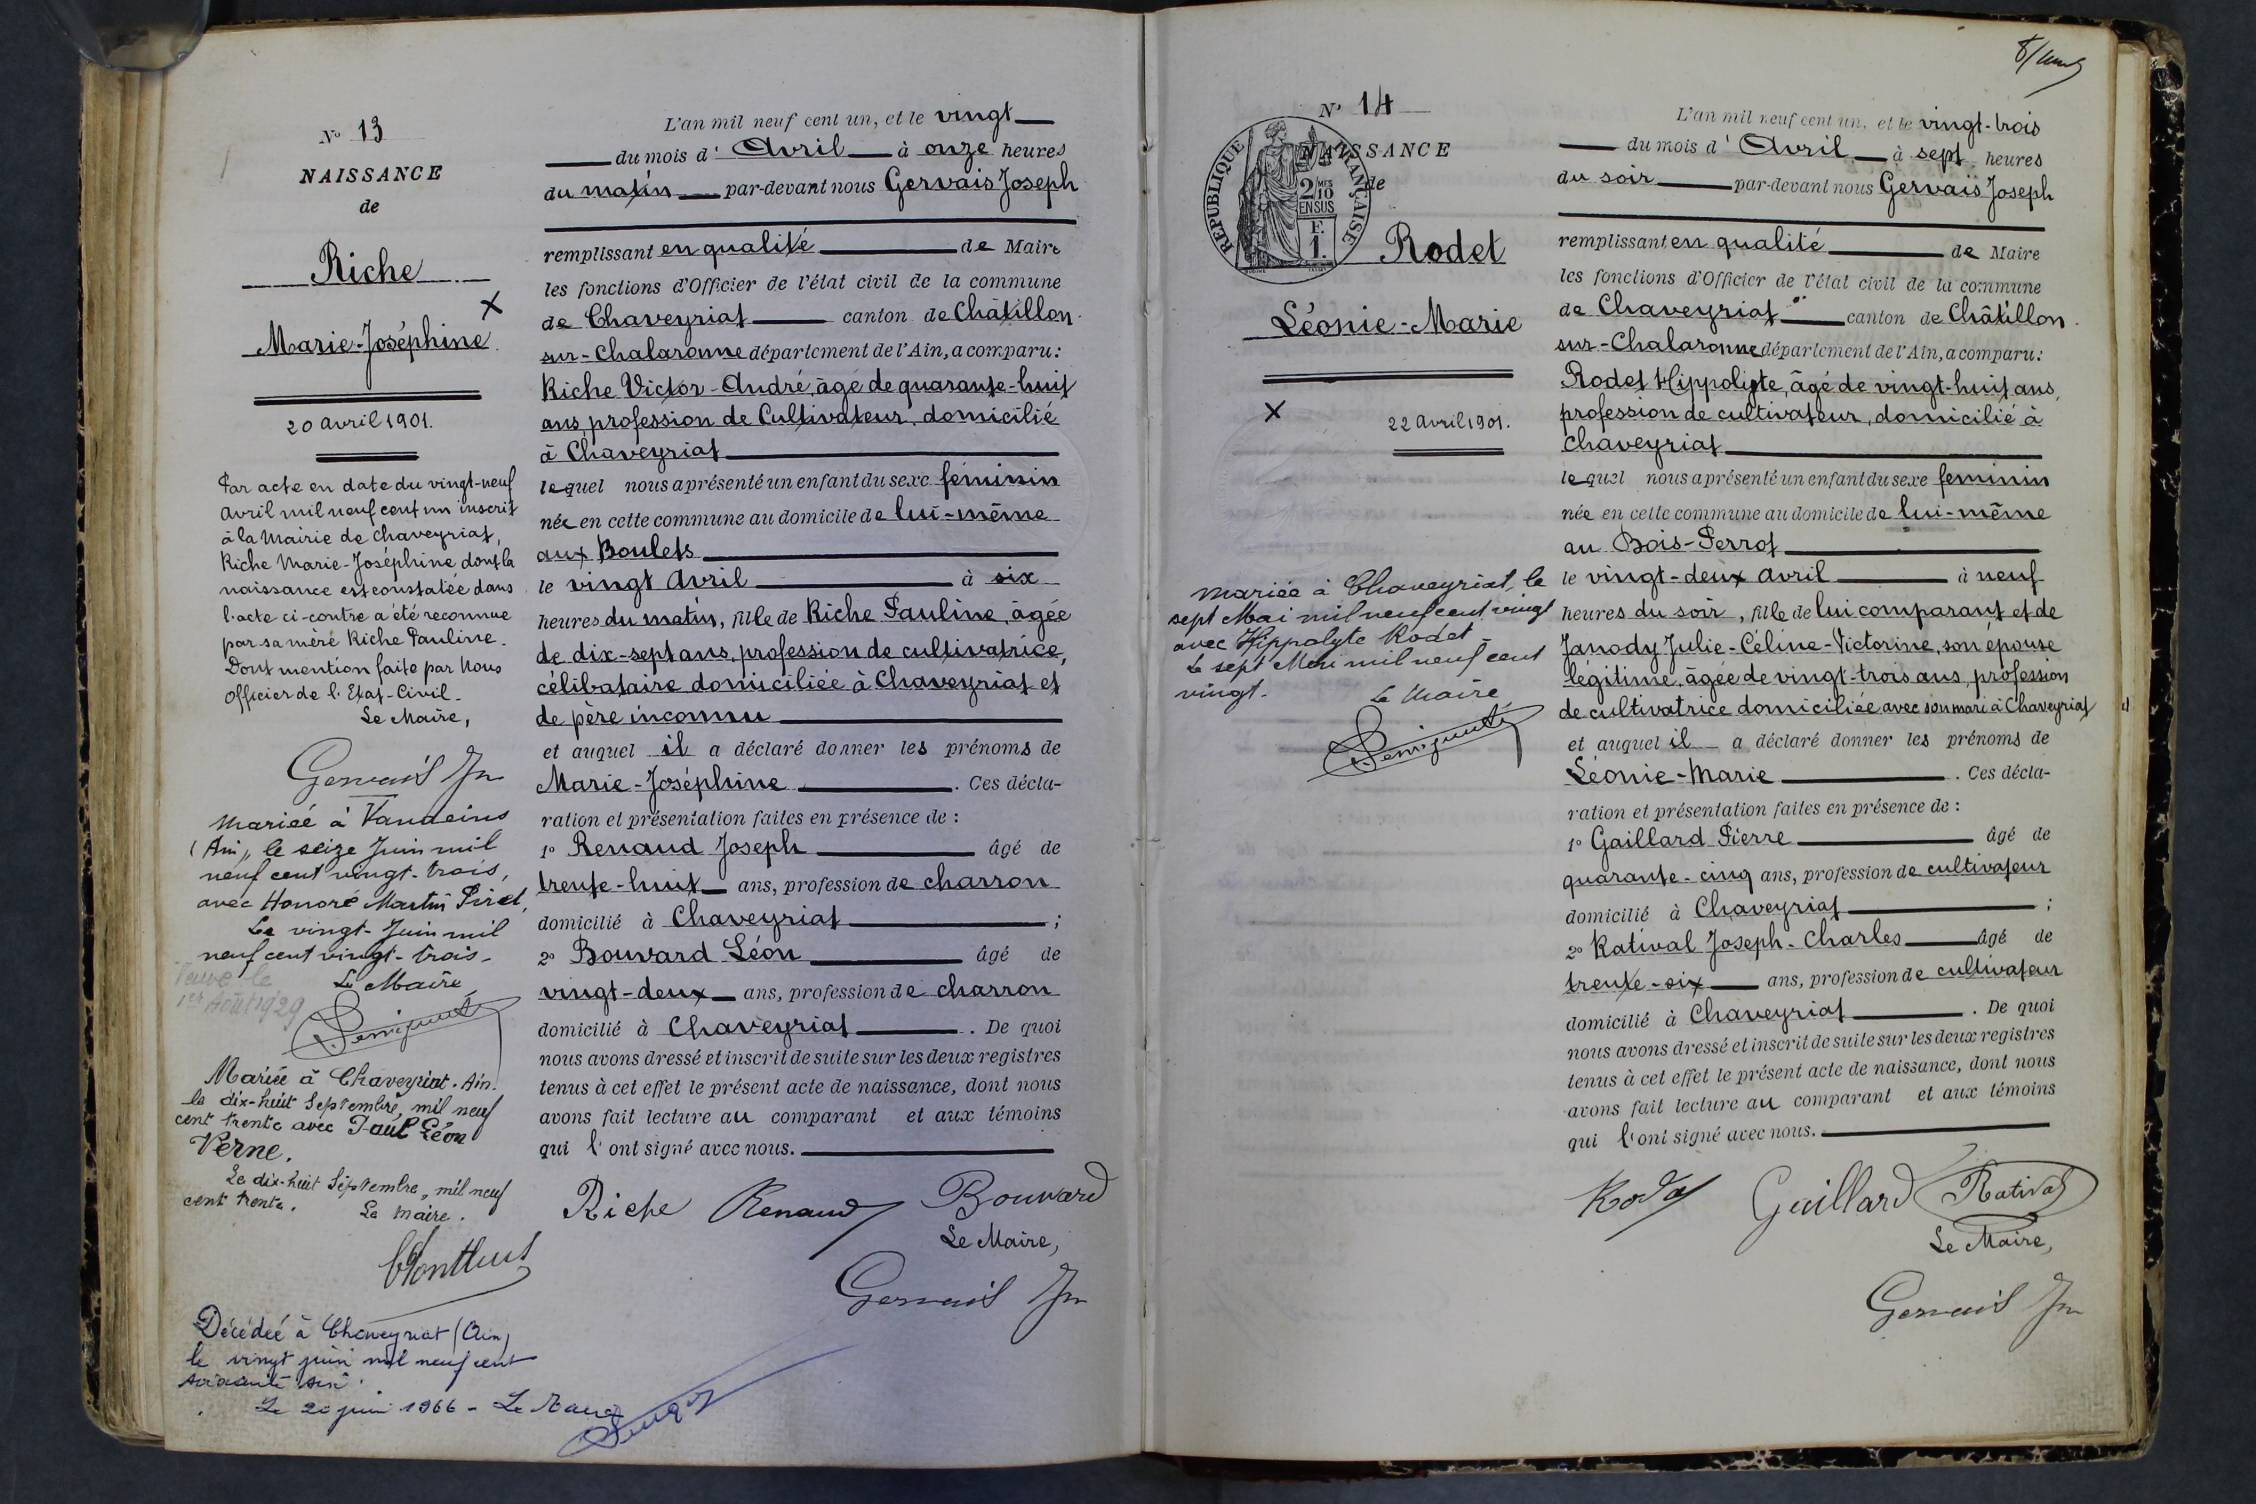 Nº 13
NAISSANCE
de
Riche
Marie-Joséphine
20 avril 1901.
Par acte en date du vingt-neuf
avril mil neuf cent un inscrit
à la Mairie de Chaveyriat,
Riche Marie-Joséphine dont la
naissance est constatée dans
l'acte ci-contre a été reconnue
par sa mère Riche Pauline.
Dont mention faite par Nous
Officier de l'Etat-Civil.
Le Maire,
Gervais Jn
Mariée à Vandeins
(Ain), le seize Juin mil
neuf cent vingt-trois,
avec Honoré Martin Piret,
Le vingt Juin mil
neuf cent vingt-trois.
Veuve le
1er Août 1929
Le Maire,
Mariée à Chaveyriat. Ain.
le dix-huit Septembre, mil neuf
cent trente avec Paul Léon
Verne.
Le dix-huit Septembre, mil neuf
cent trente.
Le Maire.
Décédée à Chaveyriat (Ain)
le vingt juin mil neuf cent
soixante six
Le 20 juin 1966 - Le Maire
L'an mil neuf cent un, et le vingt
du mois d'Avril à onze heures
du matin par-devant nous Gervais Joseph
remplissant en qualité de Maire
les fonctions d'Officier de l'état civil de la commune
de Chaveyriat canton de Châtillon
sur-Chalaronne département de l'Ain, a comparu:
Riche Victor-André, âgé de quarante-huit
ans, profession de Cultivateur, domicilié
à Chaveyriat
lequel nous a présenté un enfant du sexe féminin
née en cette commune au domicile de lui-même
aux Boulets
le vingt Avril à six
heures du matin, fille de Riche Pauline, âgée
de dix-sept ans, profession de cultivatrice,
célibataire domiciliée à Chaveyriat et
de père inconnu
et auquel il a déclaré donner les prénoms de
Marie-Joséphine. Ces décla-
ration et présentation faites en présence de :
1º Renaud Joseph âgé de
trente-huit ans, profession de charron
domicilié à Chaveyriat ;
2º Bouvard Léon âgé de
vingt-deux ans, profession de charron
domicilié à Chaveyriat. De quoi
nous avons dressé et inscrit de suite sur les deux registres
tenus à cet effet le présent acte de naissance, dont nous
avons fait lecture au comparant et aux témoins
qui l'ont signé avec nous.
Riche Renaud Bouvard
Le Maire,
Gervais Jn
Nº 14
NAISSANCE
de
RÉPUBLIQUE FRANÇAISE
2/10 MES
EN SUS
F.
1.
Rodet
Léonie-Marie
22 Avril 1901.
Mariée à Chaveyriat, le
sept Mai mil neuf cent vingt
avec Hippolyte Rodet
Le sept Mai mil neuf cent
vingt.
Le Maire
L'an mil neuf cent un, et le vingt-trois
du mois d'Avril à sept heures
du soir par-devant nous Gervais Joseph
remplissant en qualité de Maire
les fonctions d'Officier de l'état civil de la commune
de Chaveyriat canton de Châtillon
sur-Chalaronne département de l'Ain, a comparu:
Rodet Hippolyte, âgé de vingt-huit ans,
profession de cultivateur, domicilié à
Chaveyriat
lequel nous a présenté un enfant du sexe feminin
née en cette commune au domicile de lui-même
au Bois-Perrot
le vingt-deux avril à neuf
heures du soir, fille de lui comparant et de
Janody Julie-Céline-Victorine, son épouse
légitime, âgée de vingt-trois ans, profession
de cultivatrice domiciliée avec son mari à Chaveyriat
et auquel il a déclaré donner les prénoms de
Léonie-Marie. Ces décla-
ration et présentation faites en présence de :
1º Gaillard Pierre âgé de
quarante-cinq ans, profession de cultivateur
domicilié à Chaveyriat ;
2º Rativat Joseph-Charles âgé de
trente-six ans, profession de cultivateur
domicilié à Chaveyriat. De quoi
nous avons dressé et inscrit de suite sur les deux registres
tenus à cet effet le présent acte de naissance, dont nous
avons fait lecture au comparant et aux témoins
qui l'ont signé avec nous.
Rodet Gaillard Rativat
Le Maire,
Gervais Jn